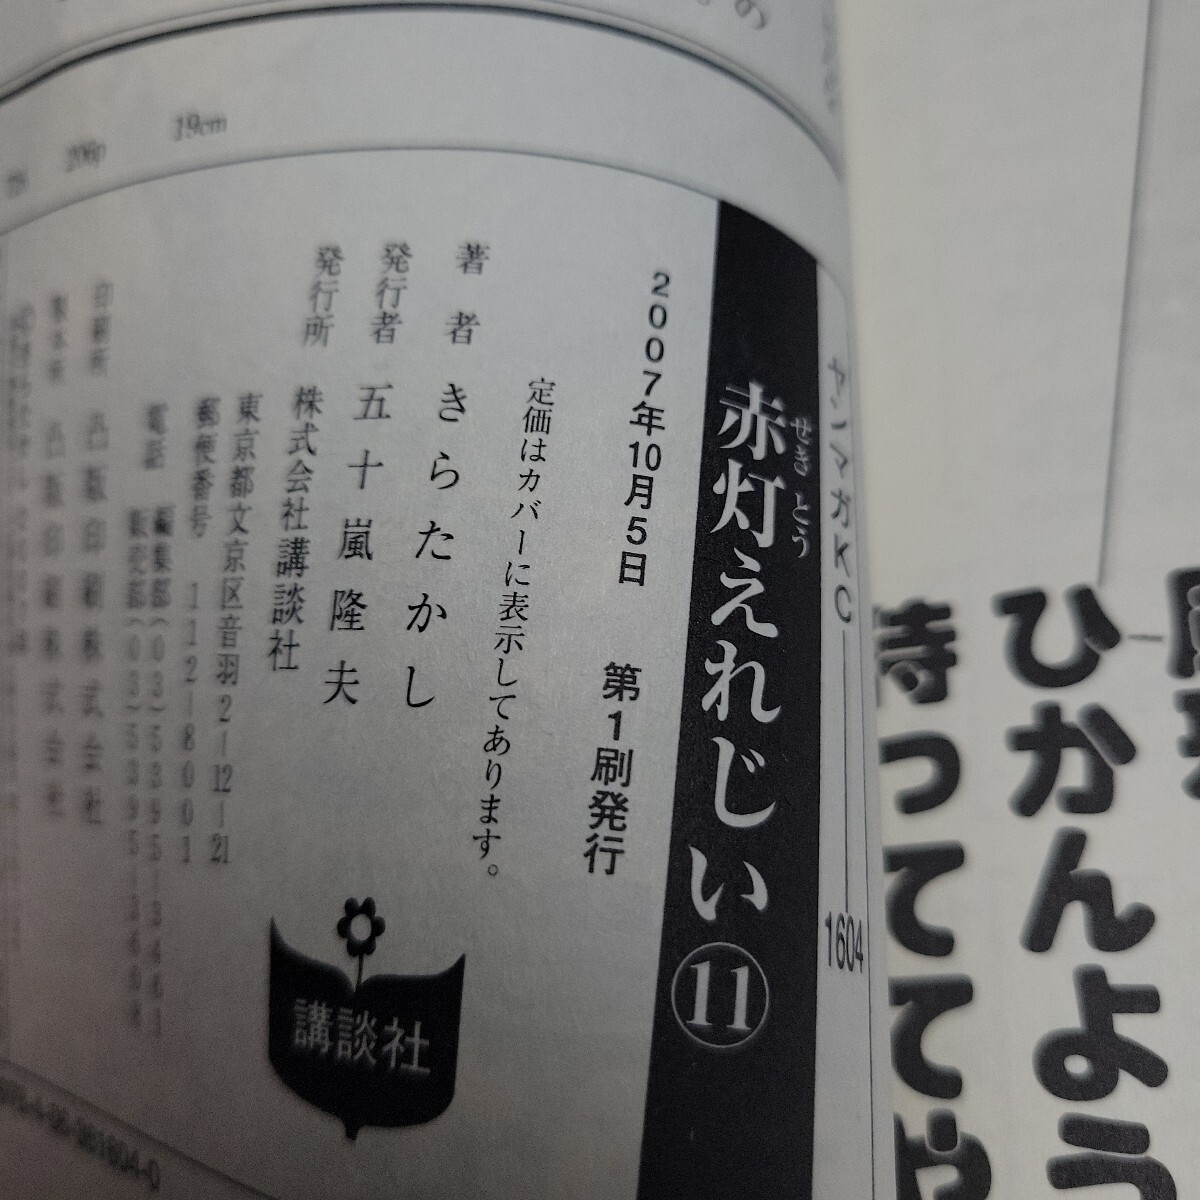 ひかんよう
待ってて
ヤンマガKC
1604
せきとう
赤灯えれじい⑪
2007年10月5日 第1刷発行
定価はカバーに表示してあります。
著者 きらたかし
発行者 五十嵐隆夫
発行所 株式会社講談社
東京都文京区音羽2-12-21
郵便番号 112-8001
電話 編集部(03)5395-3461
販売部(03)5395-3608
印刷所 凸版印刷株式会社
製本所 凸版印刷株式会社
講談社
206p 19cm